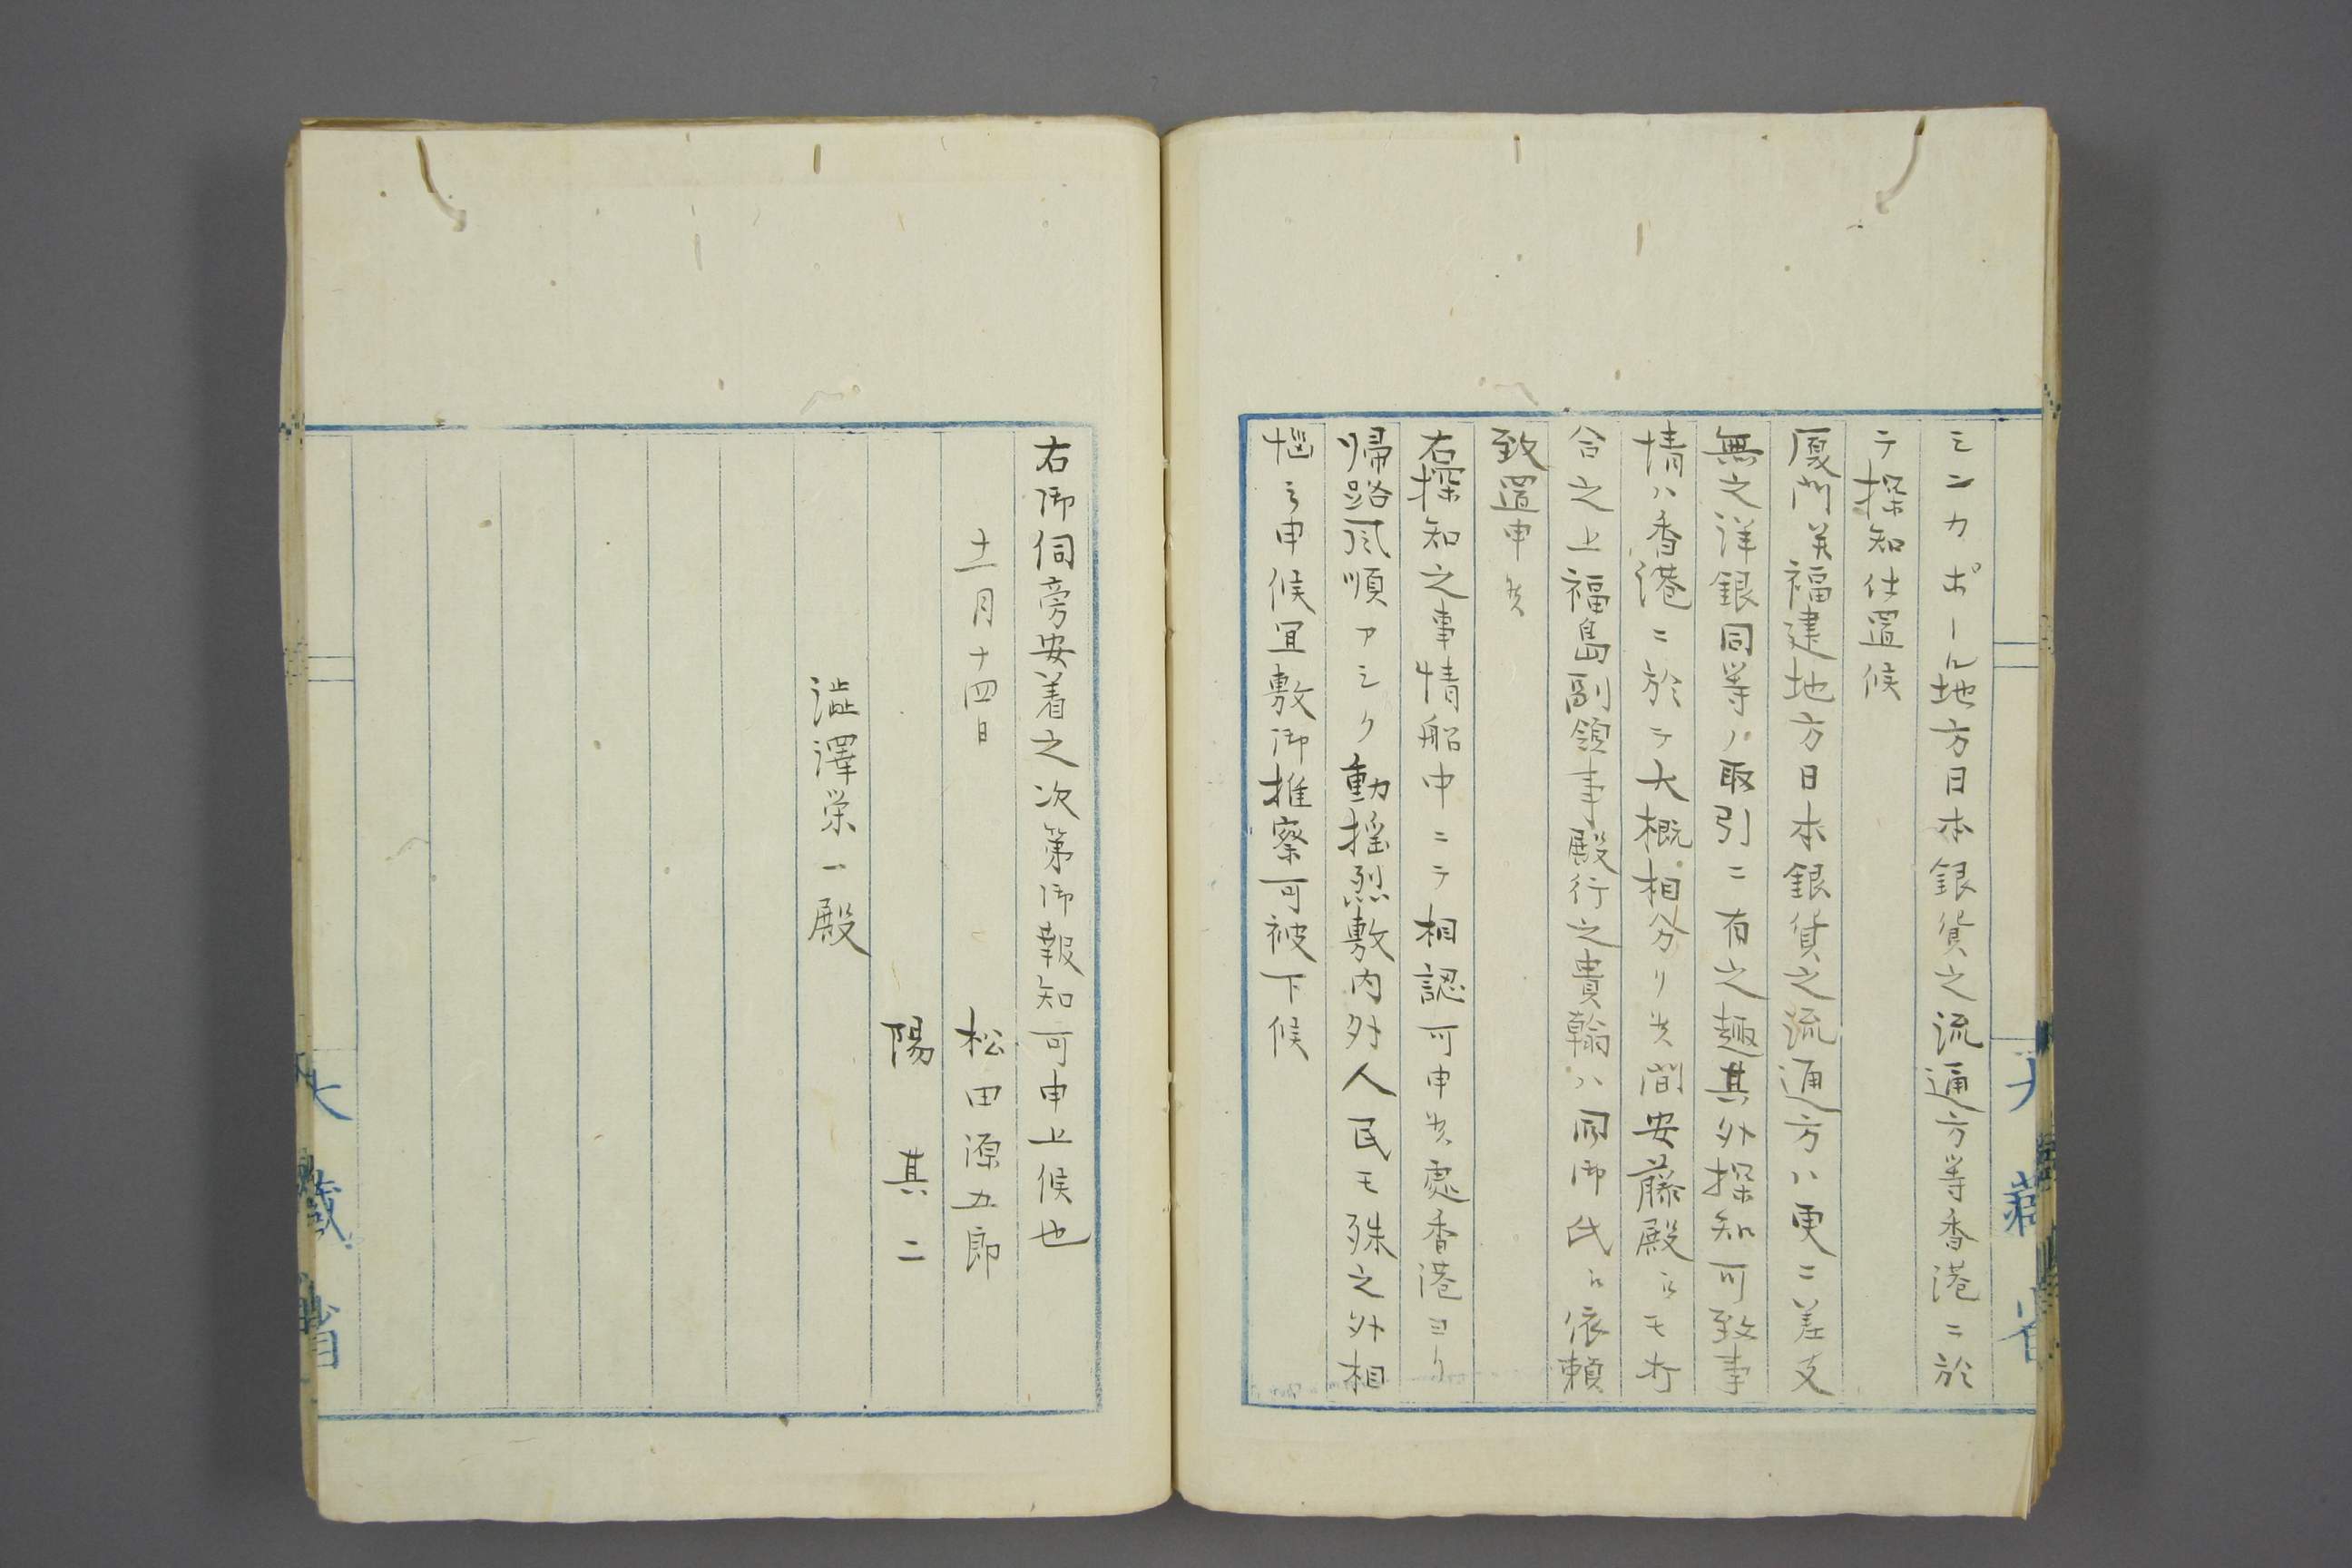 シンカポール地方日本銀貨之流通方等香港ニ於
テ探知仕置候
厦門並福建地方日本銀貨之流通方ハ更ニ差支
無之洋銀同等ノ取引ニ有之趣其外探知可致事
情ハ香港ニ於テ大概相分リ候間安藤殿ヘモ打
合之上福島副領事殿行之貴翰ハ同御氏ヘ依頼
致置申候
右探知之事情船中ニテ相認可申候處香港ヨリ
帰路風順アシク動揺烈敷内外人民モ殊之外相
悩ミ申候宜敷御推察可被下候
大藏省
右御伺旁安着之次第御報知可申上候也
十一月十四日
松田源五郎
陽其二
澁澤栄一殿
大藏省